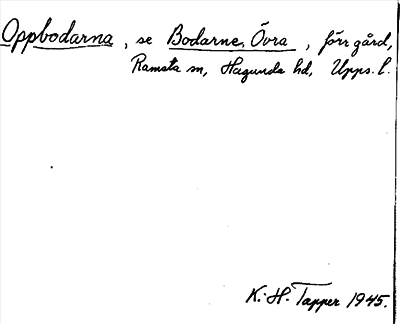 Oppbodarna, se Bodarne, Övra, förr gård,
Ramsta sn, Hagunda hd, Upps. l.
K.-H. Tapper 1945.